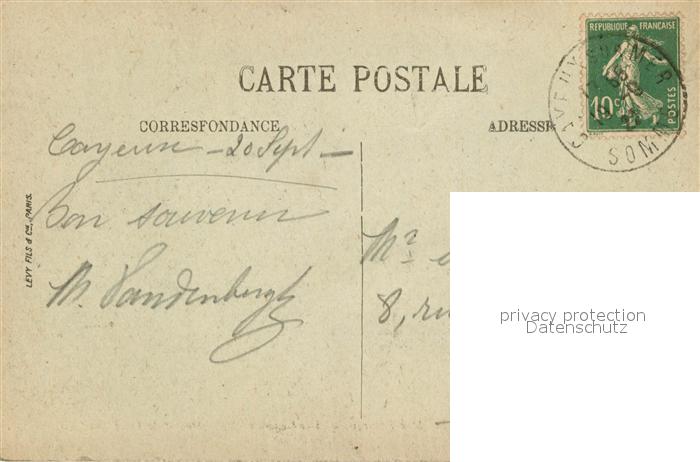 RÉPUBLIQUE FRANÇAISE
10c
POSTES
CAYEUX-SUR-MER
SOMME
CARTE POSTALE
CORRESPONDANCE
ADRESSE
Cayeux - 20 Sept -
Bon souvenir
M. Vandenbergh
LEVY FILS & Cie, PARIS.
Mr
8, ru
privacy protection
Datenschutz